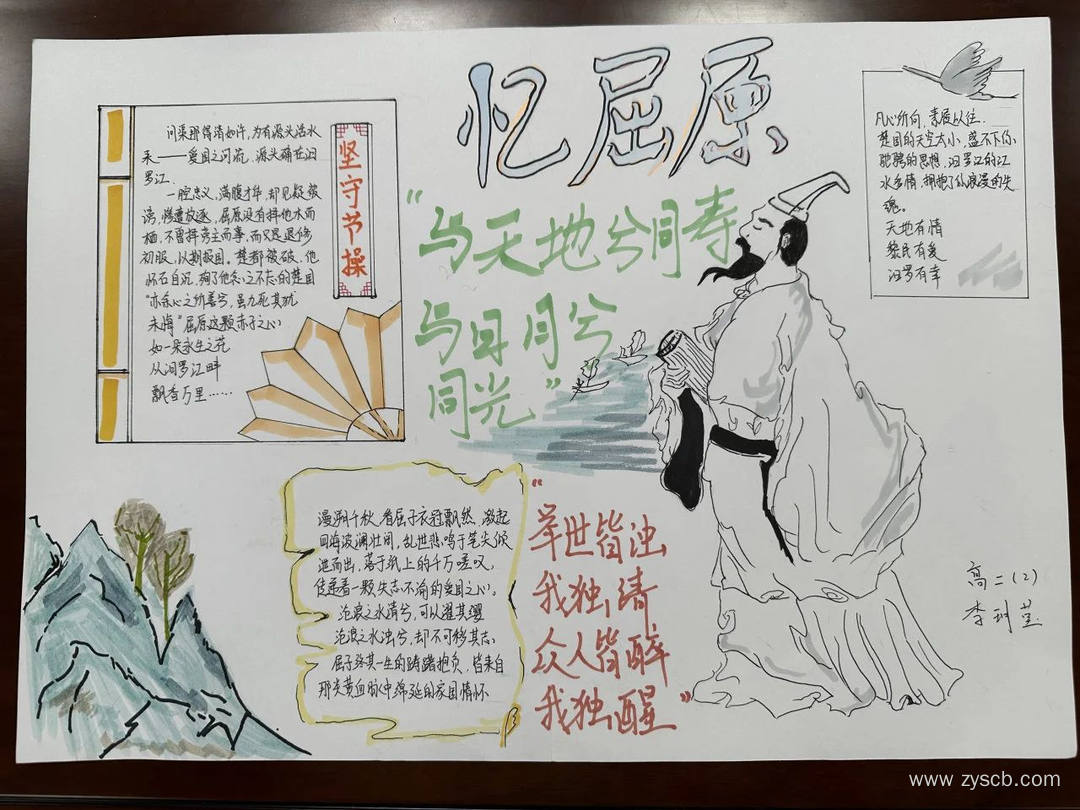 忆屈原
问渠那得清如许,为有源头活水
来——爱国之河流,源头确在汨
罗江.
一腔忠义,满腹才华,却见疑被
谤,惨遭放逐,屈原没有择他木而
栖,不曾择旁主而事,而只是退修
初服,以期报国。楚都被破,他
怀石自沉,殉了他念之不忘的楚国
"亦余心之所善兮,虽九死其犹
未悔"屈原这颗赤子之心
如一朵永生之花
从汨罗江畔
飘香万里……
坚守节操
"与天地兮同寿
与日月兮
同光"
凡心所向,素履以往.
楚国的天空太小,盛不下你
驰骋的思想,汨罗江的江
水多情,拥抱了你浪漫的失
魂。
天地有情
黎民有爱
汨罗有幸
漫溯千秋,看屈子衣冠飘然,激起
四海波澜壮阔,乱世悲鸣于笔尖倾
泄而出,落于纸上的千万嗟叹,
传递着一颗矢志不渝的爱国之心。
沧浪之水清兮,可以濯其缨
沧浪之水浊兮,却不可移其志
屈子终其一生的踌躇抱负,皆来自
那炎黄血脉中绵延的家国情怀
"举世皆浊
我独清
众人皆醉
我独醒"
高二(2)
李
www.zyscb.com